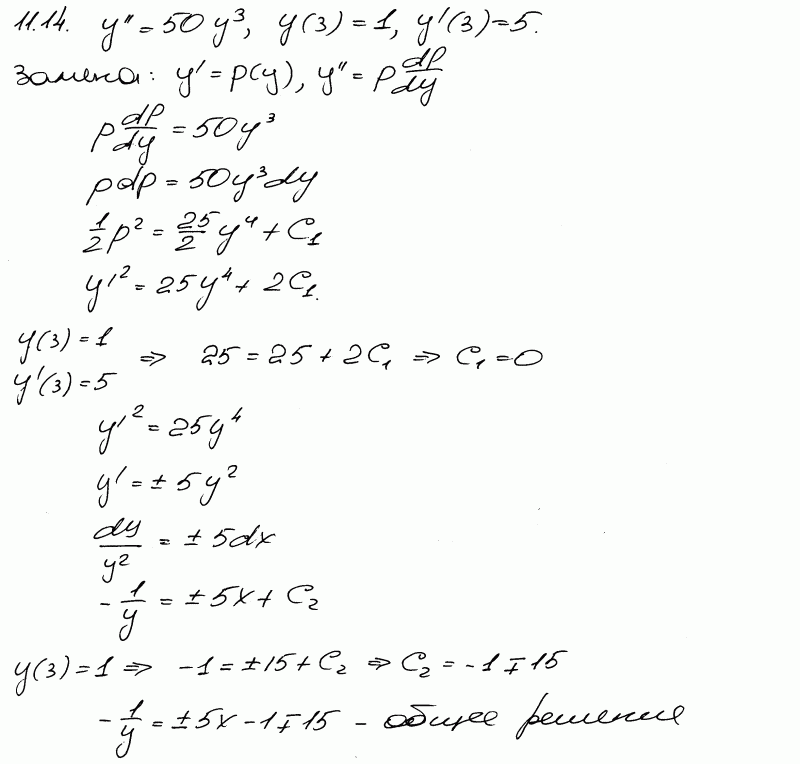 11.14. y'' = 50y³, y(3) = 1, y'(3) = 5.
Замена: y' = p(y), y'' = p dp/dy
p dp/dy = 50y³
pdp = 50y³dy
1/2 p² = 25/2 y⁴ + C₁
y'² = 25y⁴ + 2C₁.
y(3) = 1
y'(3) = 5 ⇒ 25 = 25 + 2C₁ ⇒ C₁ = 0
y'² = 25y⁴
y' = ± 5y²
dy/y² = ± 5dx
- 1/y = ± 5x + C₂
y(3) = 1 ⇒ -1 = ±15 + C₂ ⇒ C₂ = -1 ∓ 15
- 1/y = ± 5x - 1 ∓ 15 - общее решение